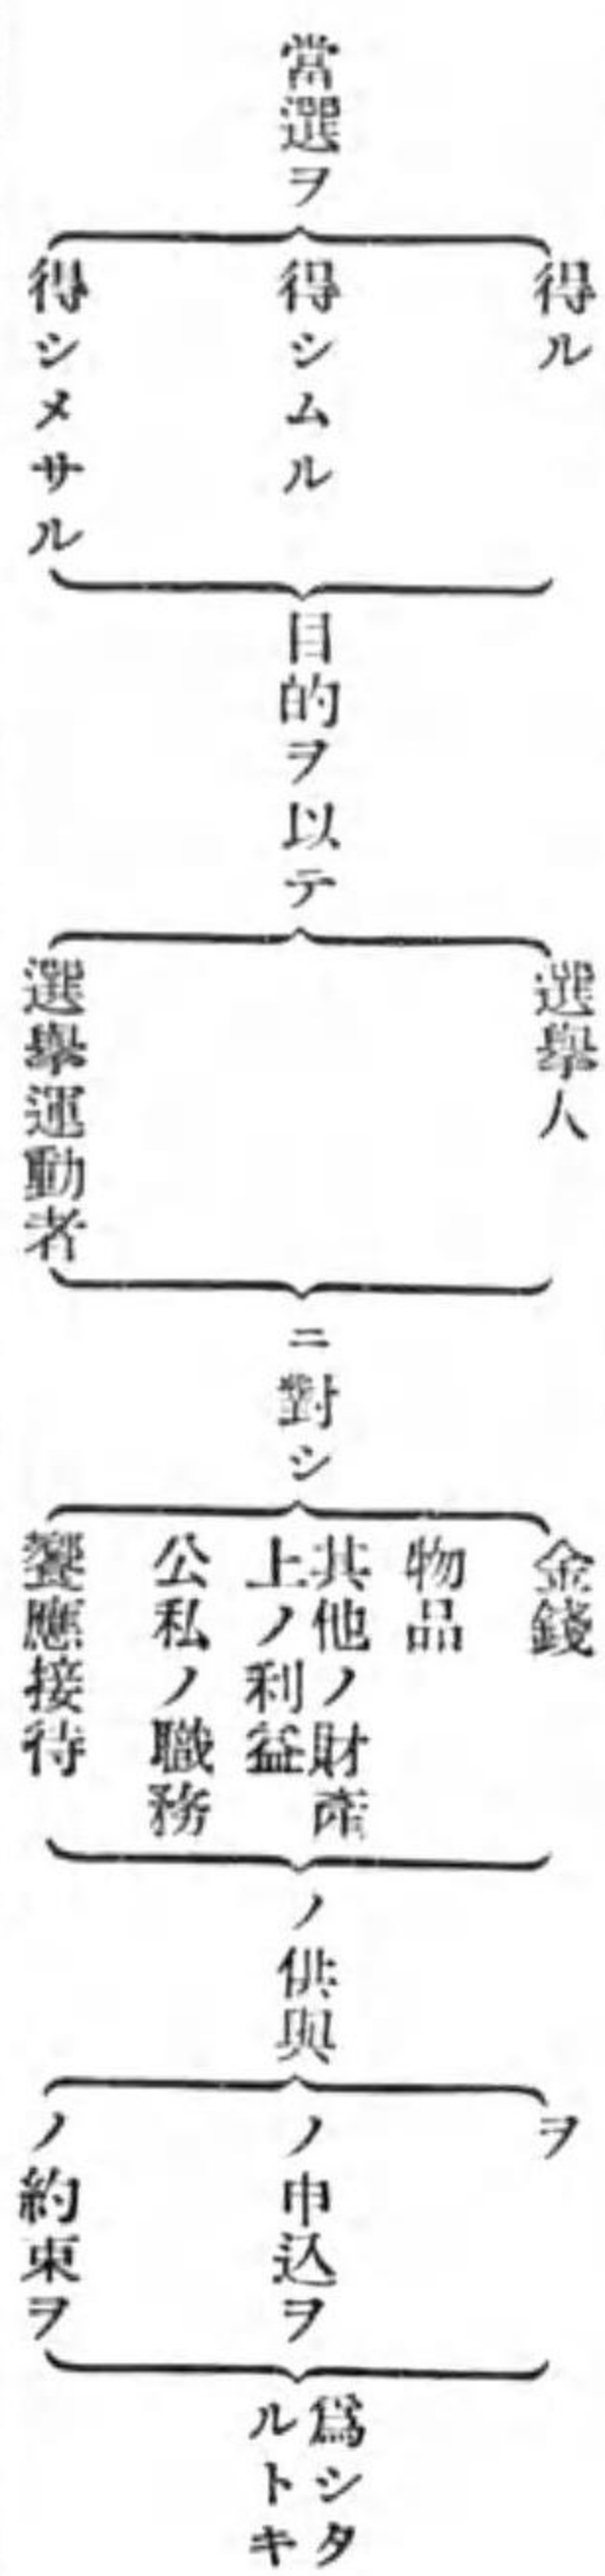 當選ヲ
得ル
得シムル
得シメサル
目的ヲ以テ
選擧人
選擧運動者
ニ對シ
金錢
物品
其他ノ財産
上ノ利益
公私ノ職務
饗應接待
ノ供與
ヲ
ノ申込ヲ
ノ約束ヲ
爲シタ
ルトキ